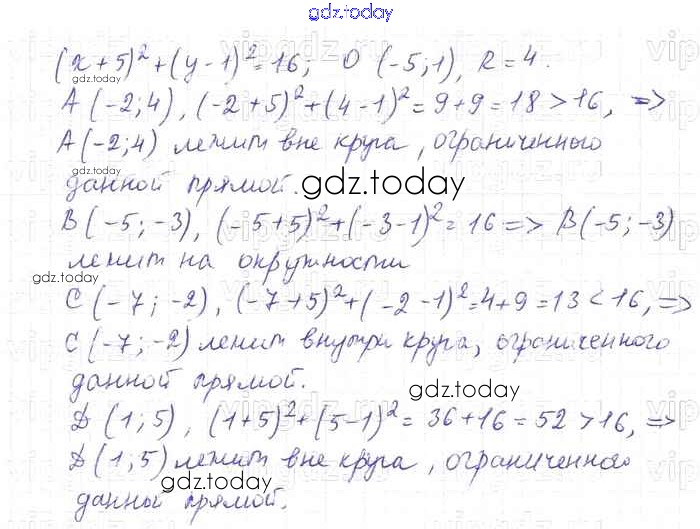 gdz.today
(x+5)²+(y-1)²=16; O (-5;1), R=4.
gdz.today
A (-2;4), (-2+5)²+(4-1)²=9+9=18>16, =>
A(-2;4) лежит вне круга, ограниченного
данной прямой.
gdz.today
B(-5;-3), (-5+5)²+(-3-1)²=16=> B(-5;-3)
gdz.today
лежит на окружности
C(-7;-2), (-7+5)²+(-2-1)²=4+9=13<16,=>
gdz.today
C(-7;-2) лежит внутри круга, ограниченного
данной прямой.
gdz.today
D(1;5), (1+5)²+(5-1)²=36+16=52>16,=>
D(1;5) лежит вне круга, ограниченной
gdz.today
gdz.today
данны прямой.